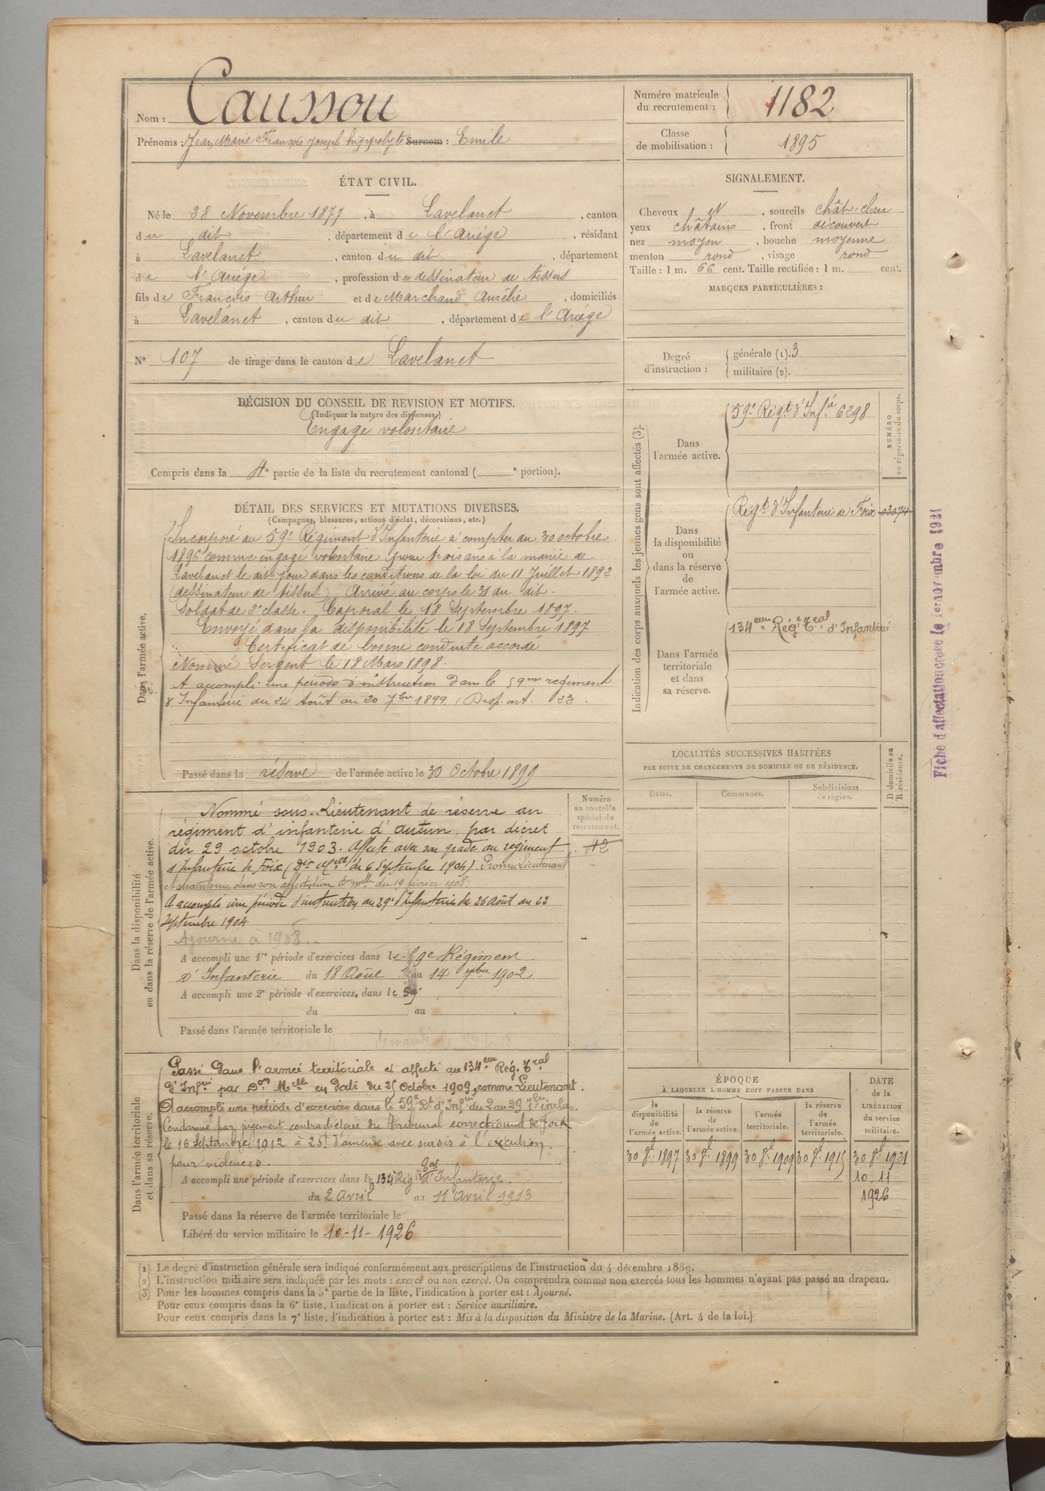 Nom : Caussou
Prénoms : Jean Marie François Joseph hippolyte Surnom : Emile
Numéro matricule
du recrutement : 1182
Classe
de mobilisation : 1895
ÉTAT CIVIL.
Né le 28 Novembre 1877, à Lavelanet, canton
du dit, département de l'Ariége, résidant
à Lavelanet, canton du dit, département
de l'Ariége, profession de dessinateur de tissus
fils de François Arthur et de Marchand Aurélie, domiciliés
à Lavelanet, canton du dit, département de l'Ariége
N° 107 de tirage dans le canton de Lavelanet
SIGNALEMENT.
Cheveux et, sourcils chât-clair
yeux châtains, front découvert
nez moyen, bouche moyenne
menton rond, visage rond
Taille : 1 m. 66 cent. Taille rectifiée : 1 m. cent.
MARQUES PARTICULIÈRES :
Degré
d'instruction :
générale (1). 3
militaire (2).
DÉCISION DU CONSEIL DE REVISION ET MOTIFS.
(Indiquer la nature des dispenses.)
Engagé volontaire
Compris dans la 4e partie de la liste du recrutement cantonal ( e portion).
DÉTAIL DES SERVICES ET MUTATIONS DIVERSES.
(Campagnes, blessures, actions d'éclat, décorations, etc.)
Dans l'armée active.
Incorporé au 59e Régiment d'Infanterie à compter du 30 octobre
1896 comme engagé volontaire pour trois ans à la mairie de
Lavelanet le dit jour dans les conditions de la loi du 11 Juillet 1892
(dessinateur de tissus) Arrivé au corps le 31 du dit.
Soldat de 2e classe. Caporal le 18 Septembre 1897.
Envoyé dans la disponibilité le 18 Septembre 1897
Certificat de bonne conduite accordé
Nommé Sergent le 18 Mars 1898.
A accompli une période d'instruction dans le 59me regiment
d'Infanterie du 24 Août au 20 7bre 1899 (Disp. art. 23
Passé dans la réserve de l'armée active le 30 Octobre 1899
Indication des corps auxquels les jeunes gens sont affectés (3).
Dans
l'armée active.
59e Régt d'Infie 6298
NUMÉRO
au répertoire du corps.
Dans
la disponibilité
ou
dans la réserve
de
l'armée active.
Régt d'Infanterie de Foix 02074
Dans l'armée
territoriale
et dans
sa réserve.
134eme Régt Tral d'Infanterie
LOCALITÉS SUCCESSIVES HABITÉES
PAR SUITE DE CHANGEMENTS DE DOMICILE OU DE RÉSIDENCE.
Dates. Communes. Subdivisions
de région.
D domicile ou
R résidence.
Dans la disponibilité
ou dans la réserve de l'armée active.
Numéro
au contrôle
spécial du
recrutement.
Nommé sous-Lieutenant de réserve au
régiment d'infanterie d'Autun par décret
du 29 octobre 1903. Affecté avec son grade au régiment
d'Infanterie de Foix (du 6 Septembre 1904) Promu Lieutenant
et maintenu dans son affectation du 19 février 1908.
A accompli une période d'instruction au 29e d'Infanterie de 26 août au 22
septembre 1904
Ajourné à 1908
A accompli une 1re période d'exercices dans le 59e Régiment
d'Infanterie du 18 Août au 14 7bre 1902
A accompli une 2e période d'exercices, dans le 59e
du au
Passé dans l'armée territoriale le
Dans l'armée territoriale
et dans sa réserve.
Passé dans l'armée territoriale et affecté au 134eme Rég. Tral
d'Infrie par Don Melle en date du 25 Octobre 1909, comme Lieutenant.
A accompli une période d'exercices dans le 59e Rt d'Infrie du 2 au 29 7bre inclus
Condamné par jugement contradictoire du Tribunal correctionnel de Foix
le 18 septembre 1912 à 25f d'amende avec sursis à l'exécution
pour violences.
A accompli une période d'exercices dans le 134 Régt Tral d'Infanterie
du 2 Avril au 11 Avril 1913
Passé dans la réserve de l'armée territoriale le
Libéré du service militaire le 10-11-1926
ÉPOQUE
À LAQUELLE L'HOMME DOIT PASSER DANS
la
disponibilité
de
l'armée active.
la réserve
de
l'armée active.
l'armée
territoriale.
la réserve
de
l'armée
territoriale.
DATE
de la
LIBÉRATION
du service
militaire.
30 8bre 1897 30 8bre 1899 30 8bre 1909 30 8bre 1915 30 8bre 1921
10-11
1926
Fiche d'affectation créée le 1er novembre 1921
(1) Le degré d'instruction générale sera indiqué conformément aux prescriptions de l'instruction du 4 décembre 1889.
(2) L'instruction militaire sera indiquée par les mots : exercé ou non exercé. On comprendra comme non exercés tous les hommes n'ayant pas passé au drapeau.
(3) Pour les hommes compris dans la 5e partie de la liste, l'indication à porter est : Ajourné.
Pour ceux compris dans la 6e liste, l'indication à porter est : Service auxiliaire.
Pour ceux compris dans la 7e liste, l'indication à porter est : Mis à la disposition du Ministre de la Marine. (Art. 4 de la loi.)